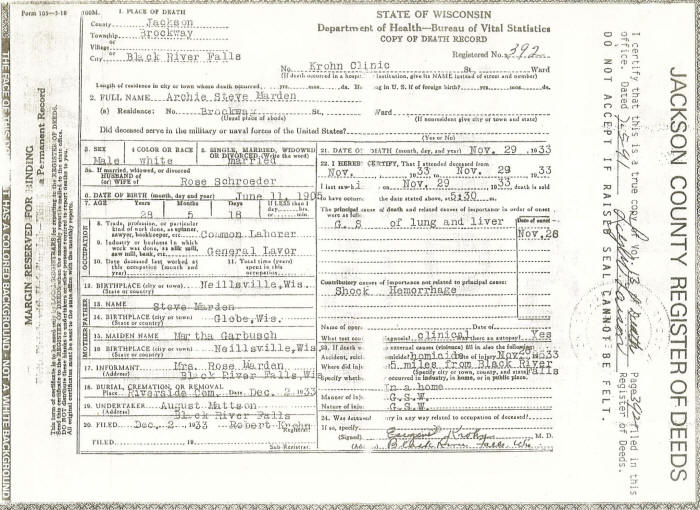 Form 105—3-18
1. PLACE OF DEATH
County Jackson
Township Brockway
or
Village
or
City Black River Falls
STATE OF WISCONSIN
Department of Health—Bureau of Vital Statistics
COPY OF DEATH RECORD
Registered No. 392
No. Krohn Clinic St., Ward
(If death occurred in a hospital institution, give its NAME instead of street and number)
Length of residence in city or town where death occurred, yrs. mos. ds. in U. S. if of foreign birth? yrs. mos. ds.
2. FULL NAME Archie Steve Marden
(a) Residence: No. Brockway St., Ward
(Usual place of abode) (If nonresident give city or town and state)
Did deceased serve in the military or naval forces of the United States?
(Yes or No)
3. SEX
Male
4 COLOR OR RACE
white
5. SINGLE, MARRIED, WIDOWED
OR DIVORCED (Write the word)
married
5a. If married, widowed, or divorced
HUSBAND of
(or) WIFE of Rose Schroeder
6. DATE OF BIRTH (month, day and year) June 11, 1905
7. AGE Years Months Days If LESS than 1
28 5 18
OCCUPATION
8. Trade, profession, or particular
kind of work done, as spinner,
sawyer, bookkeeper, etc. Common Laborer
9. Industry or business in which
work was done, as silk mill,
saw mill, bank, etc. General Lavor
10. Date deceased last worked at
this occupation (month and
year)
11. Total time (years)
spent in this
occupation
12. BIRTHPLACE (city or town) Neillsville, Wis.
(State or country)
FATHER
13. NAME Steve Marden
14. BIRTHPLACE (city or town) Globe, Wis.
(State or country)
MOTHER
15. MAIDEN NAME Martha Garbusch
16. BIRTHPLACE (city or town) Neillsville, Wis.
(State or country)
17. INFORMANT Mrs. Rose Marden
(Address) Black River Falls, Wis
18. BURIAL, CREMATION, OR REMOVAL
Place Riverside Cem. Date Dec. 2, 1933
19. UNDERTAKER August Mattson
(Address) Black River Falls
20. FILED Dec. 2, 1933 Robert Krohn
Registrar
FILED 19
Sub-Registrar
21. DATE OF DEATH (month, day, year) Nov. 29, 1933
22. I HEREBY CERTIFY, That I attended deceased from
Nov. 1933 Nov. 29 1933
I last saw h i Nov. 29 1933 death is said
to have occurred the date stated above, 5:30 m.
The principal cause of death and related causes of importance in order of onset
were as follows
Date of onset
G. S of lung and liver
Nov. 28
Contributory causes of importance not related to principal cause:
Shock Hemorrhage
Name of operation Date of
What test diagnosis? clinical Was there an autopsy? Yes
23. If death external causes (violence) fill in also the following:
Accident, suicide homicide? homicide Date of injury Nov 28 1933
Where did inj 5 miles from Black River
Falls
(Specify city or town, county, and state)
Specify whether occurred in industry, in home, or in public place.
In a home
Manner of inj G.S.W.
Nature of inj G.S.W.
24. Was in any way related to occupation of deceased?
If so, specify
(Signed) Eugene Krohn M. D.
(Ad Black River Falls Wis
MARGIN RESERVED FOR BINDING
a Permanent Record
JACKSON COUNTY REGISTER OF DEEDS
I certify that this is a true copy of Vol. 13 of death Page 392 filed in this
office. Dated Register of Deeds.
DO NOT ACCEPT IF RAISED SEAL CANNOT BE FELT.